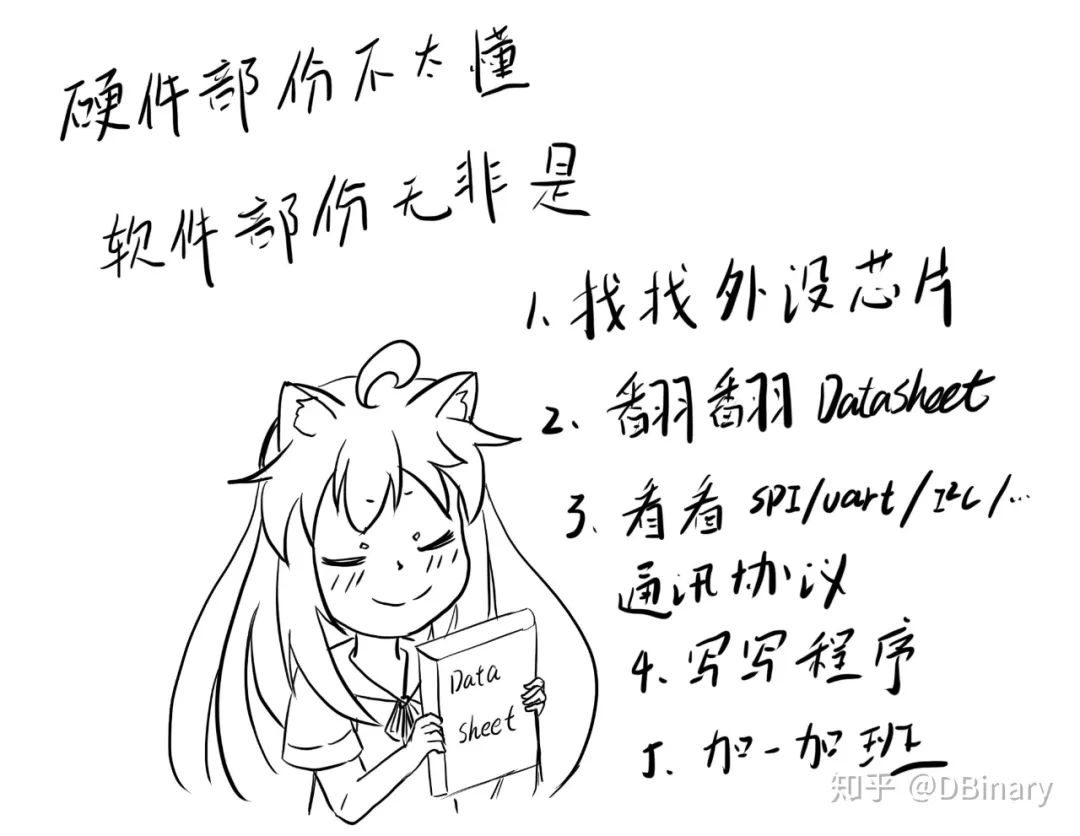 硬件部份不太懂
软件部份无非是
1. 找找外设芯片
2. 翻翻 Datasheet
3. 看看 SPI/uart/I²C/...
通讯协议
4. 写写程序
5. 加一加班
Data
sheet
知乎 @DBinary